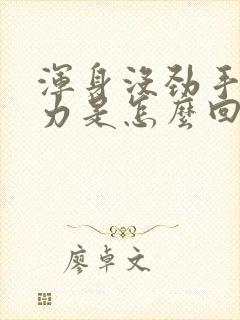 渾身沒勁手
力是怎麼回
廖卓文